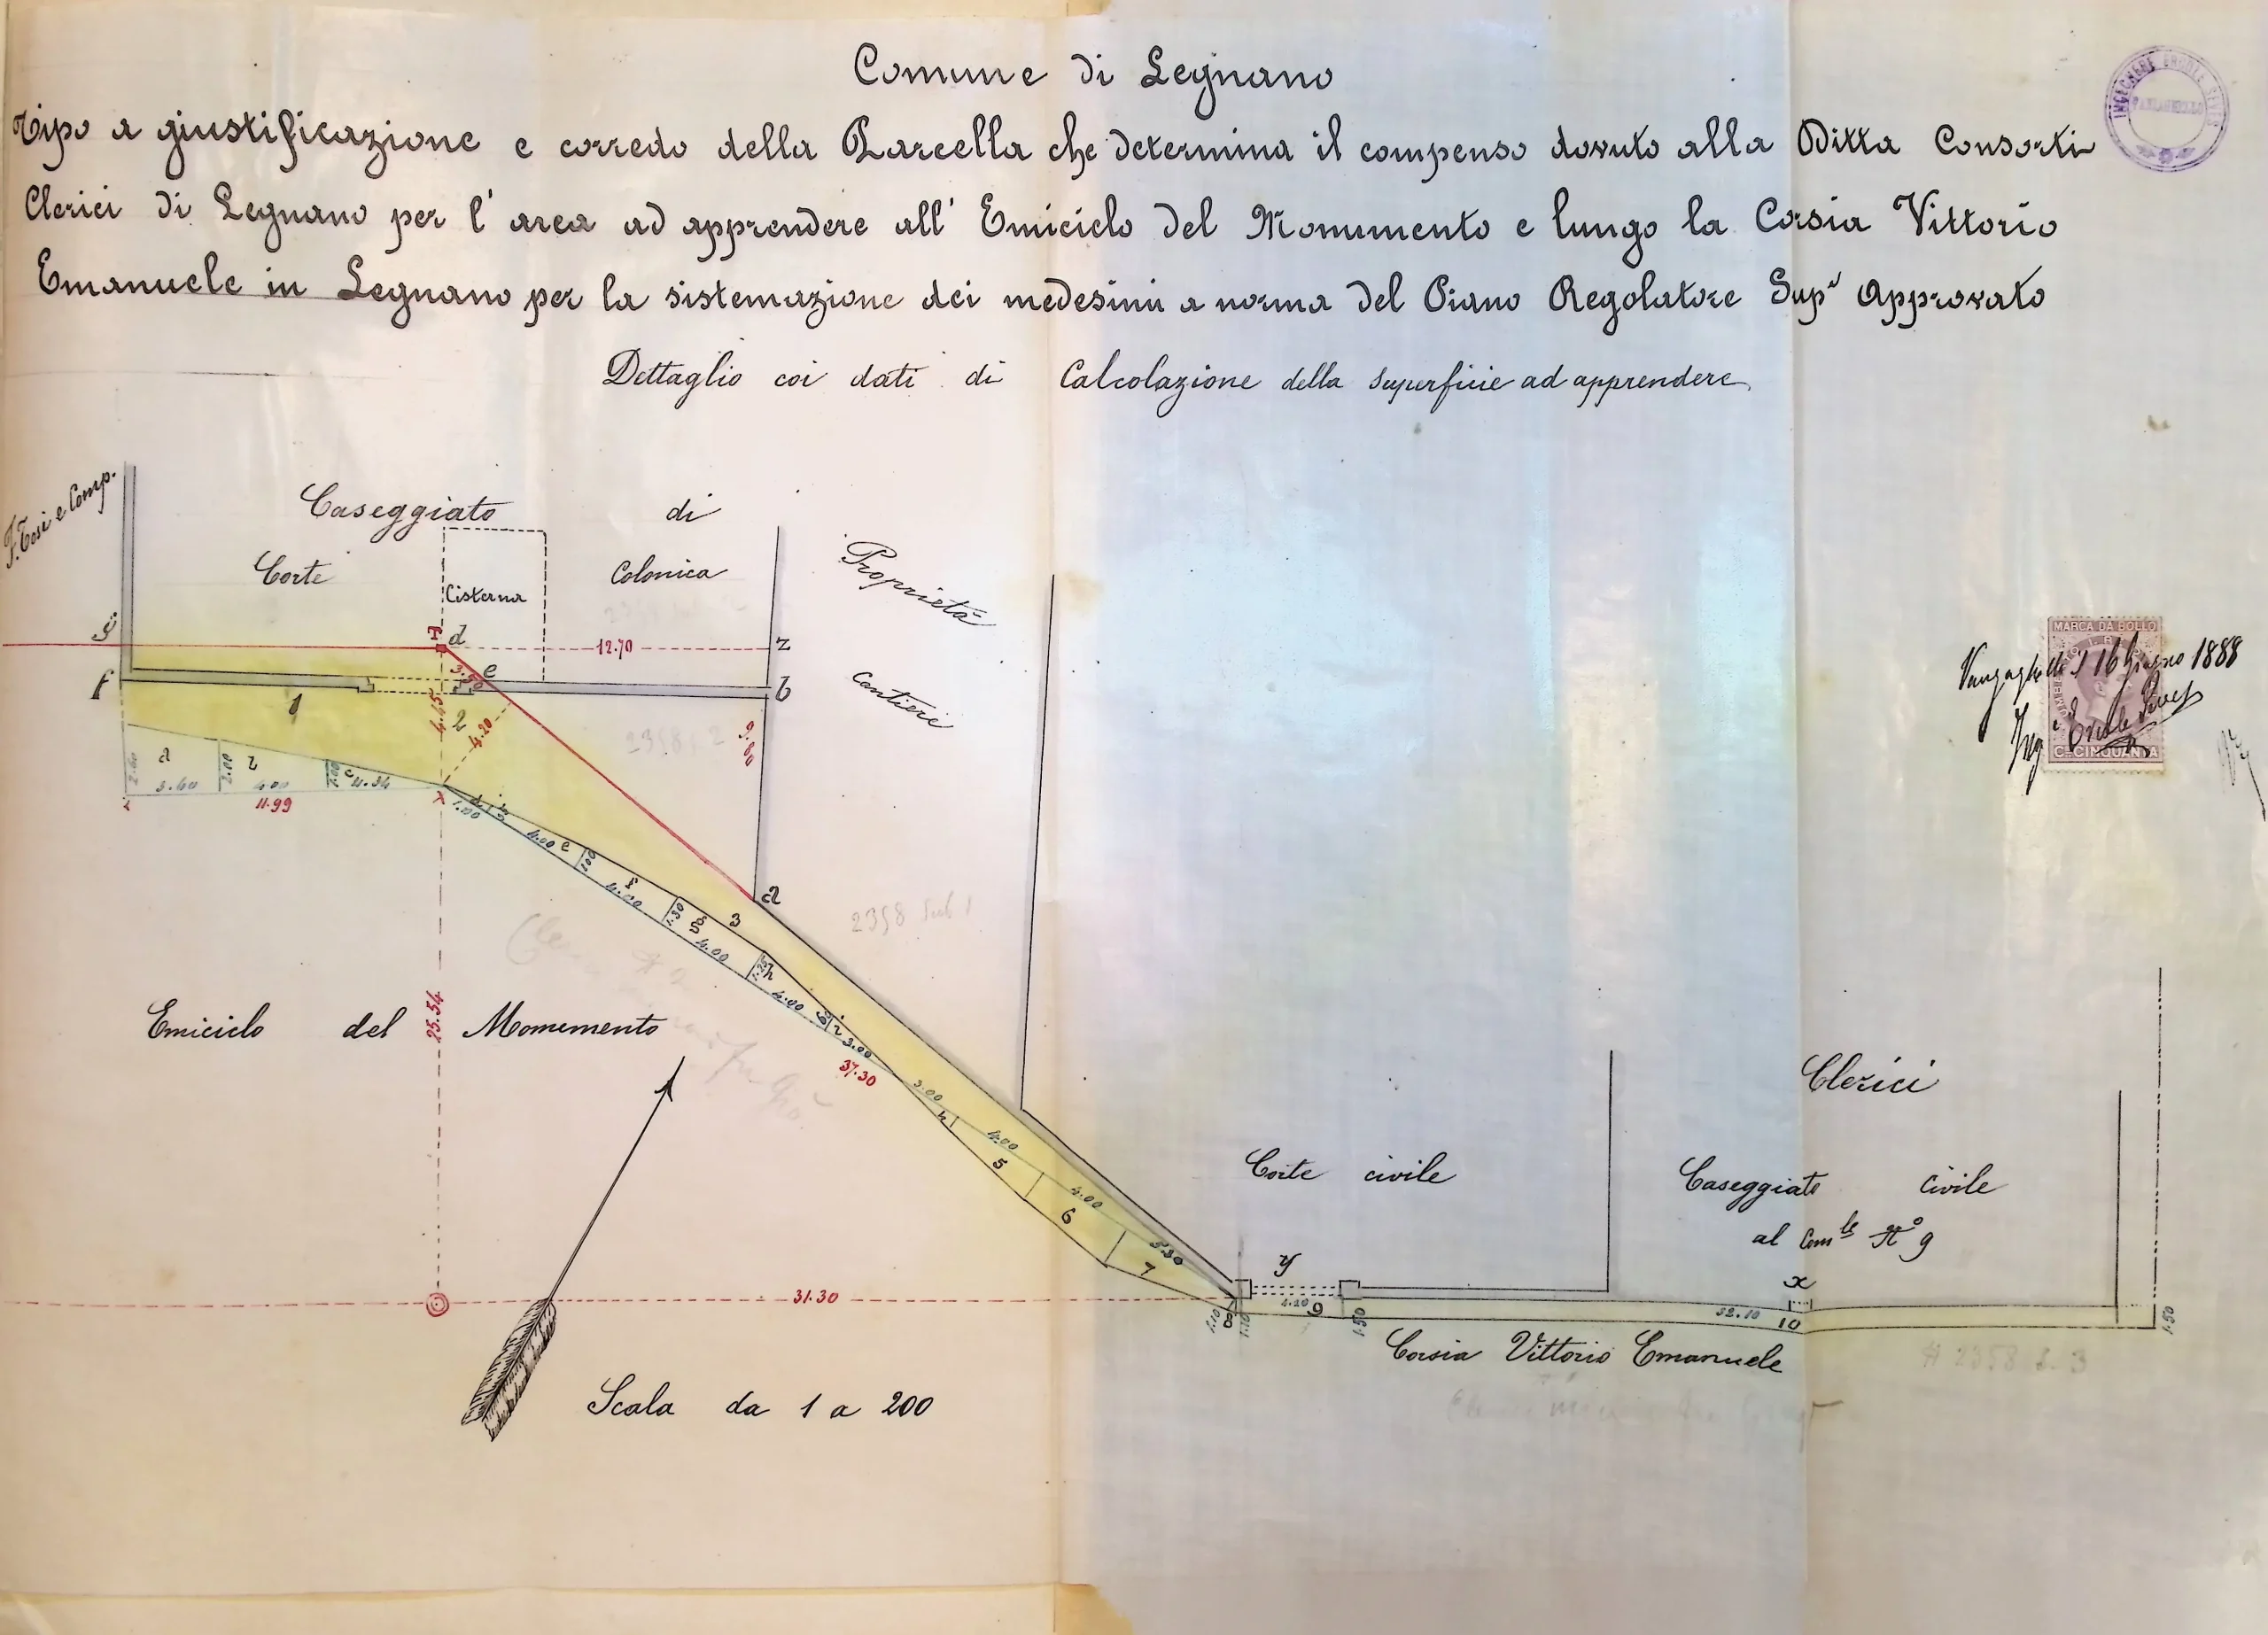 Comune di Legnano
Tipo a giustificazione e corredo della Parcella che determina il compenso dovuto alla Ditta Consorti
Clerici di Legnano per l' area ad apprendere all' Emiciclo del Monumento e lungo la Corsia Vittorio
Emanuele in Legnano per la sistemazione dei medesimi a norma del Piano Regolatore Supr Approvato
Dettaglio coi dati di Calcolazione della superficie ad apprendere
INGEGNERE ERCOLE
F. Tosi e Comp.
Caseggiato di
Corte Colonica
Cisterna
Proprietà
Cantieri
g T d 12.70 z
f e b
3.50
1 2 4.45 4.20
9.80
a b c
2.60 3.60 2.00 4.00 1.00 4.34
11.99
1.00 d
4.00 e 1.00
4.00 f 1.50
g 4.00 3 a
h 4.00
i 3.00
37.30
3.00
4.00
5
4.00
6
7
25.54
Emiciclo del Monumento
31.30
MARCA DA BOLLO
16 Giugno 1888
Ing Ercole
C. CINQUANTA
2358 Sub 1
Clerici
Corte civile
Caseggiato civile
al N° 9
y x
1.10 8 1.10 9 1.50 52.10 10 1.50
Corsia Vittorio Emanuele
2358 S. 3
Scala da 1 a 200